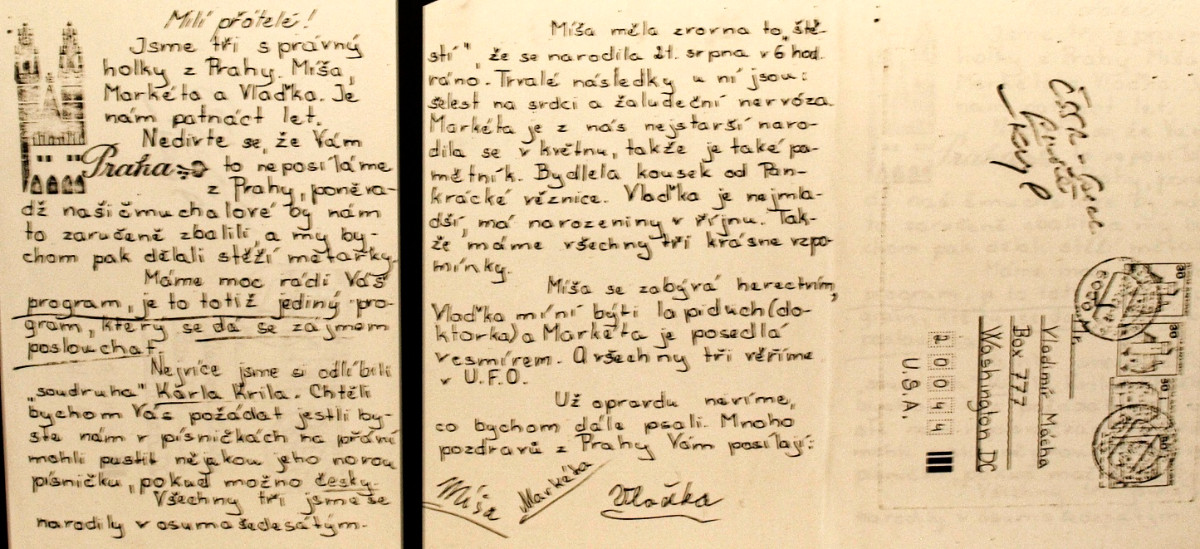 Milí přátelé!
Jsme tři správný
holky z Prahy. Míša,
Markéta a Vlaďka. Je
nám patnáct let.
Nedivte se, že Vám
Praha to neposíláme
z Prahy, poněva-
dž naši čmuchalové by nám
to zaručeně zbalili, a my by-
chom pak dělali stěží metařky.
Máme moc rádi Váš
program, je to totiž jediný pro-
gram, který se dá se zájmem
poslouchat.
Nejvíce jsme si odlíbili
"soudruha" Karla Krila. Chtěli
bychom Vás požádat jestli by-
ste nám v písničkách na přání
mohli pustit nějakou jeho novou
písničku, pokud možno česky.
Všechny tři jsme se
narodily v osumašedesátým.
Míša měla zrovna to "ště-
stí", že se narodila 21. srpna v 6 hod.
ráno. Trvalé následky u ní jsou:
šelest na srdci a žaludeční nervóza.
Markéta je z nás nejstarší naro-
dila se v květnu, takže je také pa-
mětník. Bydlela kousek od Pan-
krácké věznice. Vlaďka je nejmla-
dší, má narozeniny v říjnu. Tak-
že máme všechny tři krásne vzpo-
mínky.
Míša se zabývá herectvím,
Vlaďka míní býti lapiduch (do-
ktorka) a Markéta je posedlá
vesmírem. A všechny tři věříme
v U.F.O.
Už opravdu nevíme,
co bychom dále psali. Mnoho
pozdravů z Prahy Vám posílají:
Míša Markéta Vlaďka
Vladimír Mácha
Box 777
Washington DC
20044
U.S.A.
30
30
30